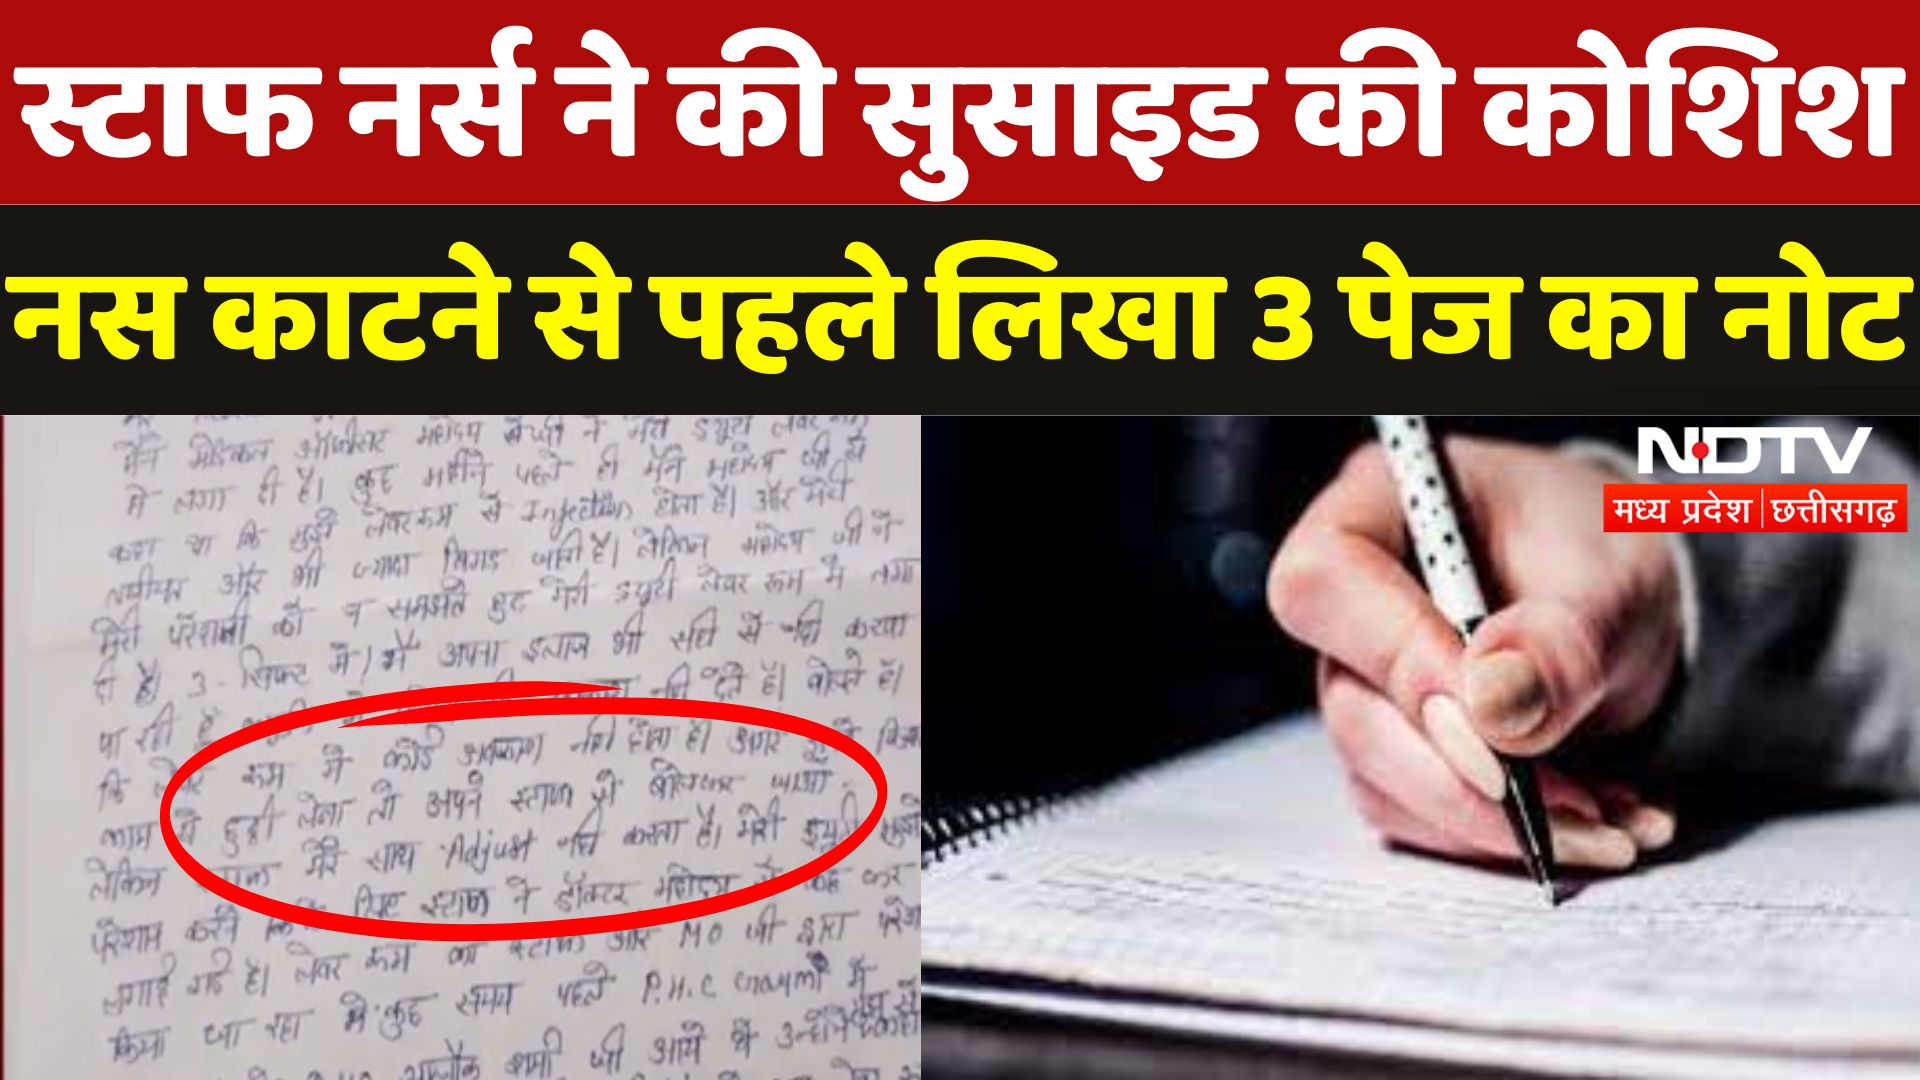 स्टाफ नर्स ने की सुसाइड की कोशिश
नस काटने से पहले लिखा 3 पेज का नोट
NDTV
मध्य प्रदेश | छत्तीसगढ़
मैंने मेडिकल ऑफीसर महोदय ने मेरी ड्यूटी लेवर रूम
में लगा दी है। कुछ महीने पहले ही मैंने महोदय जी से
कहा था कि मुझे लेवर रूम से Injection होता है। और मेरी
तबीयत और भी ज्यादा बिगड़ जाती है। लेकिन महोदय जी ने
मेरी परेशानी को न समझते हुए मेरी ड्यूटी लेवर रूम में लगा
दी है। 3 - शिफ्ट में। मैं अपना इलाज भी सही से नही करवा
पा रही नही देते हैं। बोलते हैं।
कि लेवर रूम में कोई अवकाश नही होता है। अगर
काम से छुट्टी लेना तो अपने स्टाफ से बोलकर जाओ
लेकिन स्टाफ मेरे साथ Adjust नही करता है। मेरी ड्यूटी मुझे
परेशान करने के लिए स्टाफ ने डॉक्टर महोदय से कह कर
लगाई गई है। लेवर रूम का स्टाफ और MO जी द्वारा
किया जा रहा है कुछ समय पहले P.H.C में
शर्मा जी आये थे उन्होंने